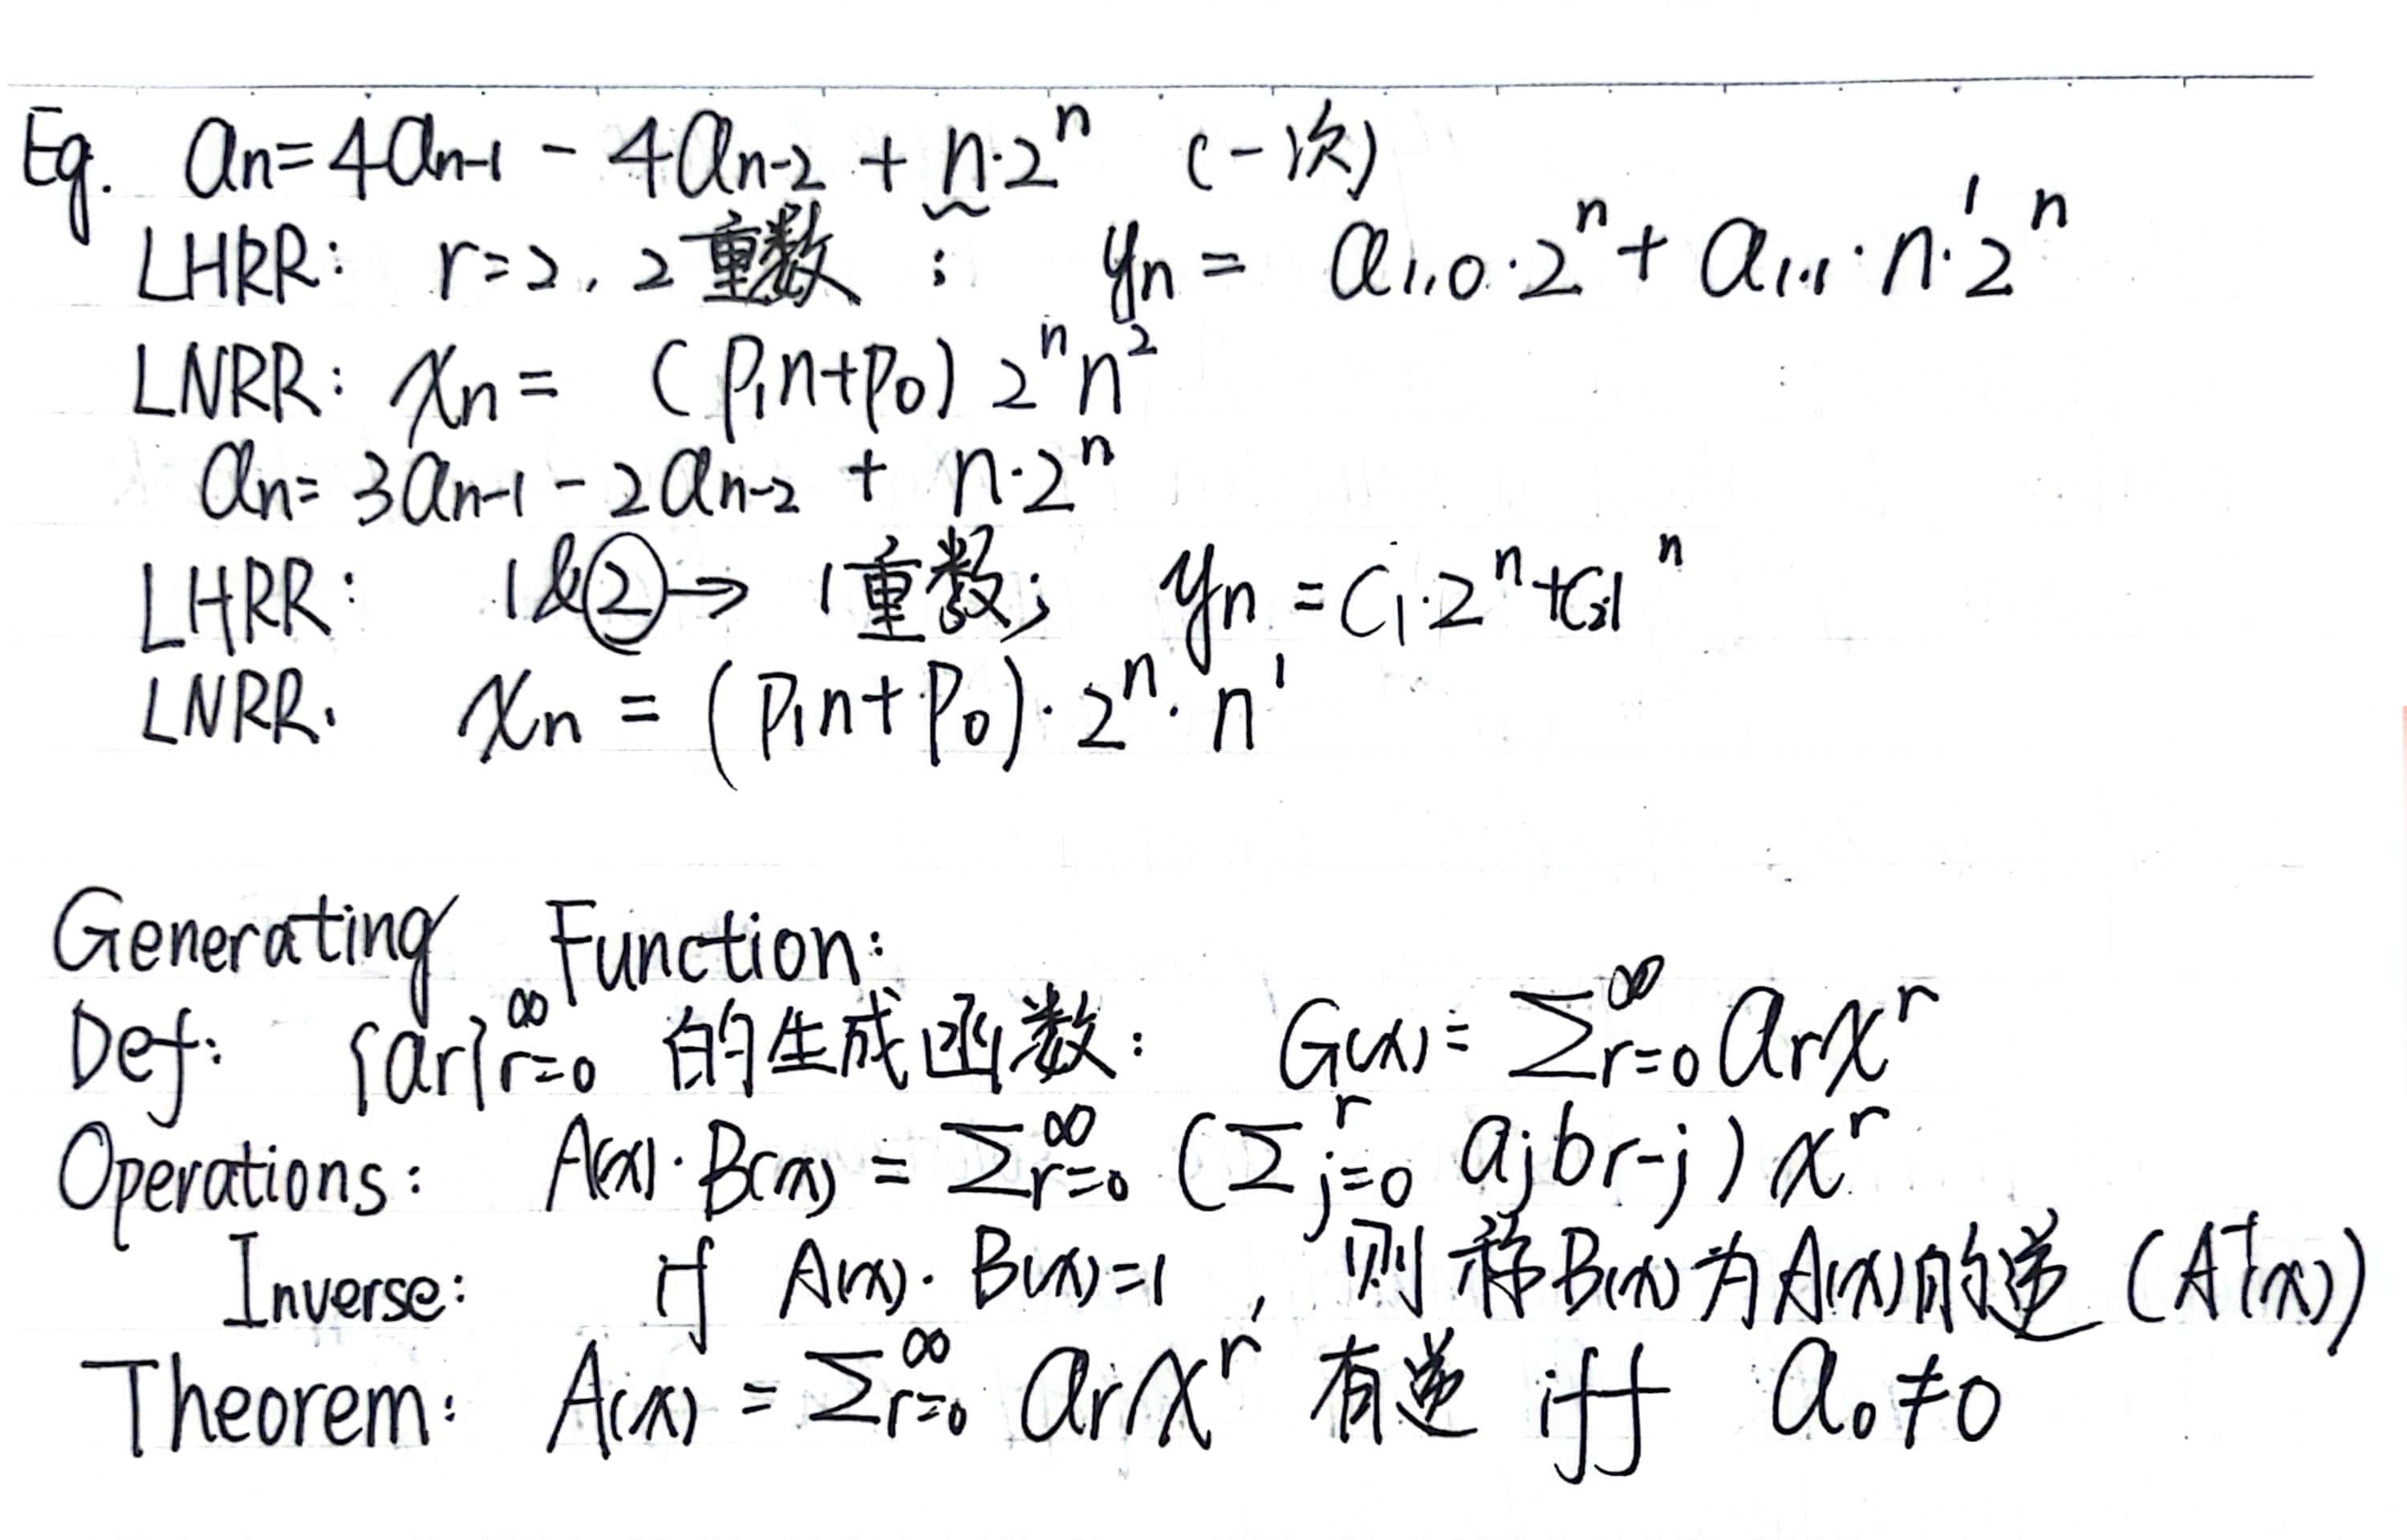 Eg. aₙ = 4aₙ₋₁ - 4aₙ₋₂ + n·2ⁿ (一次)
LHRR: r=2, 2重数 ; yₙ = a₁,₀·2ⁿ + a₁,₁·n¹·2ⁿ
LNRR: xₙ = (p₁n+p₀) 2ⁿn²
aₙ = 3aₙ₋₁ - 2aₙ₋₂ + n·2ⁿ
LHRR: 1&② → 1重数; yₙ = C₁·2ⁿ+C₂1ⁿ
LNRR. xₙ = (p₁n+p₀)·2ⁿ·n¹
Generating Function:
Def: {aᵣ}ᵣ₌₀^∞ 的生成函数: G(x) = Σᵣ₌₀^∞ aᵣxʳ
Operations: A(x)·B(x) = Σᵣ₌₀^∞ (Σⱼ₌₀^r aⱼbᵣ₋ⱼ) xʳ
Inverse: if A(x)·B(x)=1, 则称B(x)为A(x)的逆 (A⁻¹(x))
Theorem: A(x) = Σᵣ₌₀^∞ aᵣxʳ 有逆 iff a₀≠0